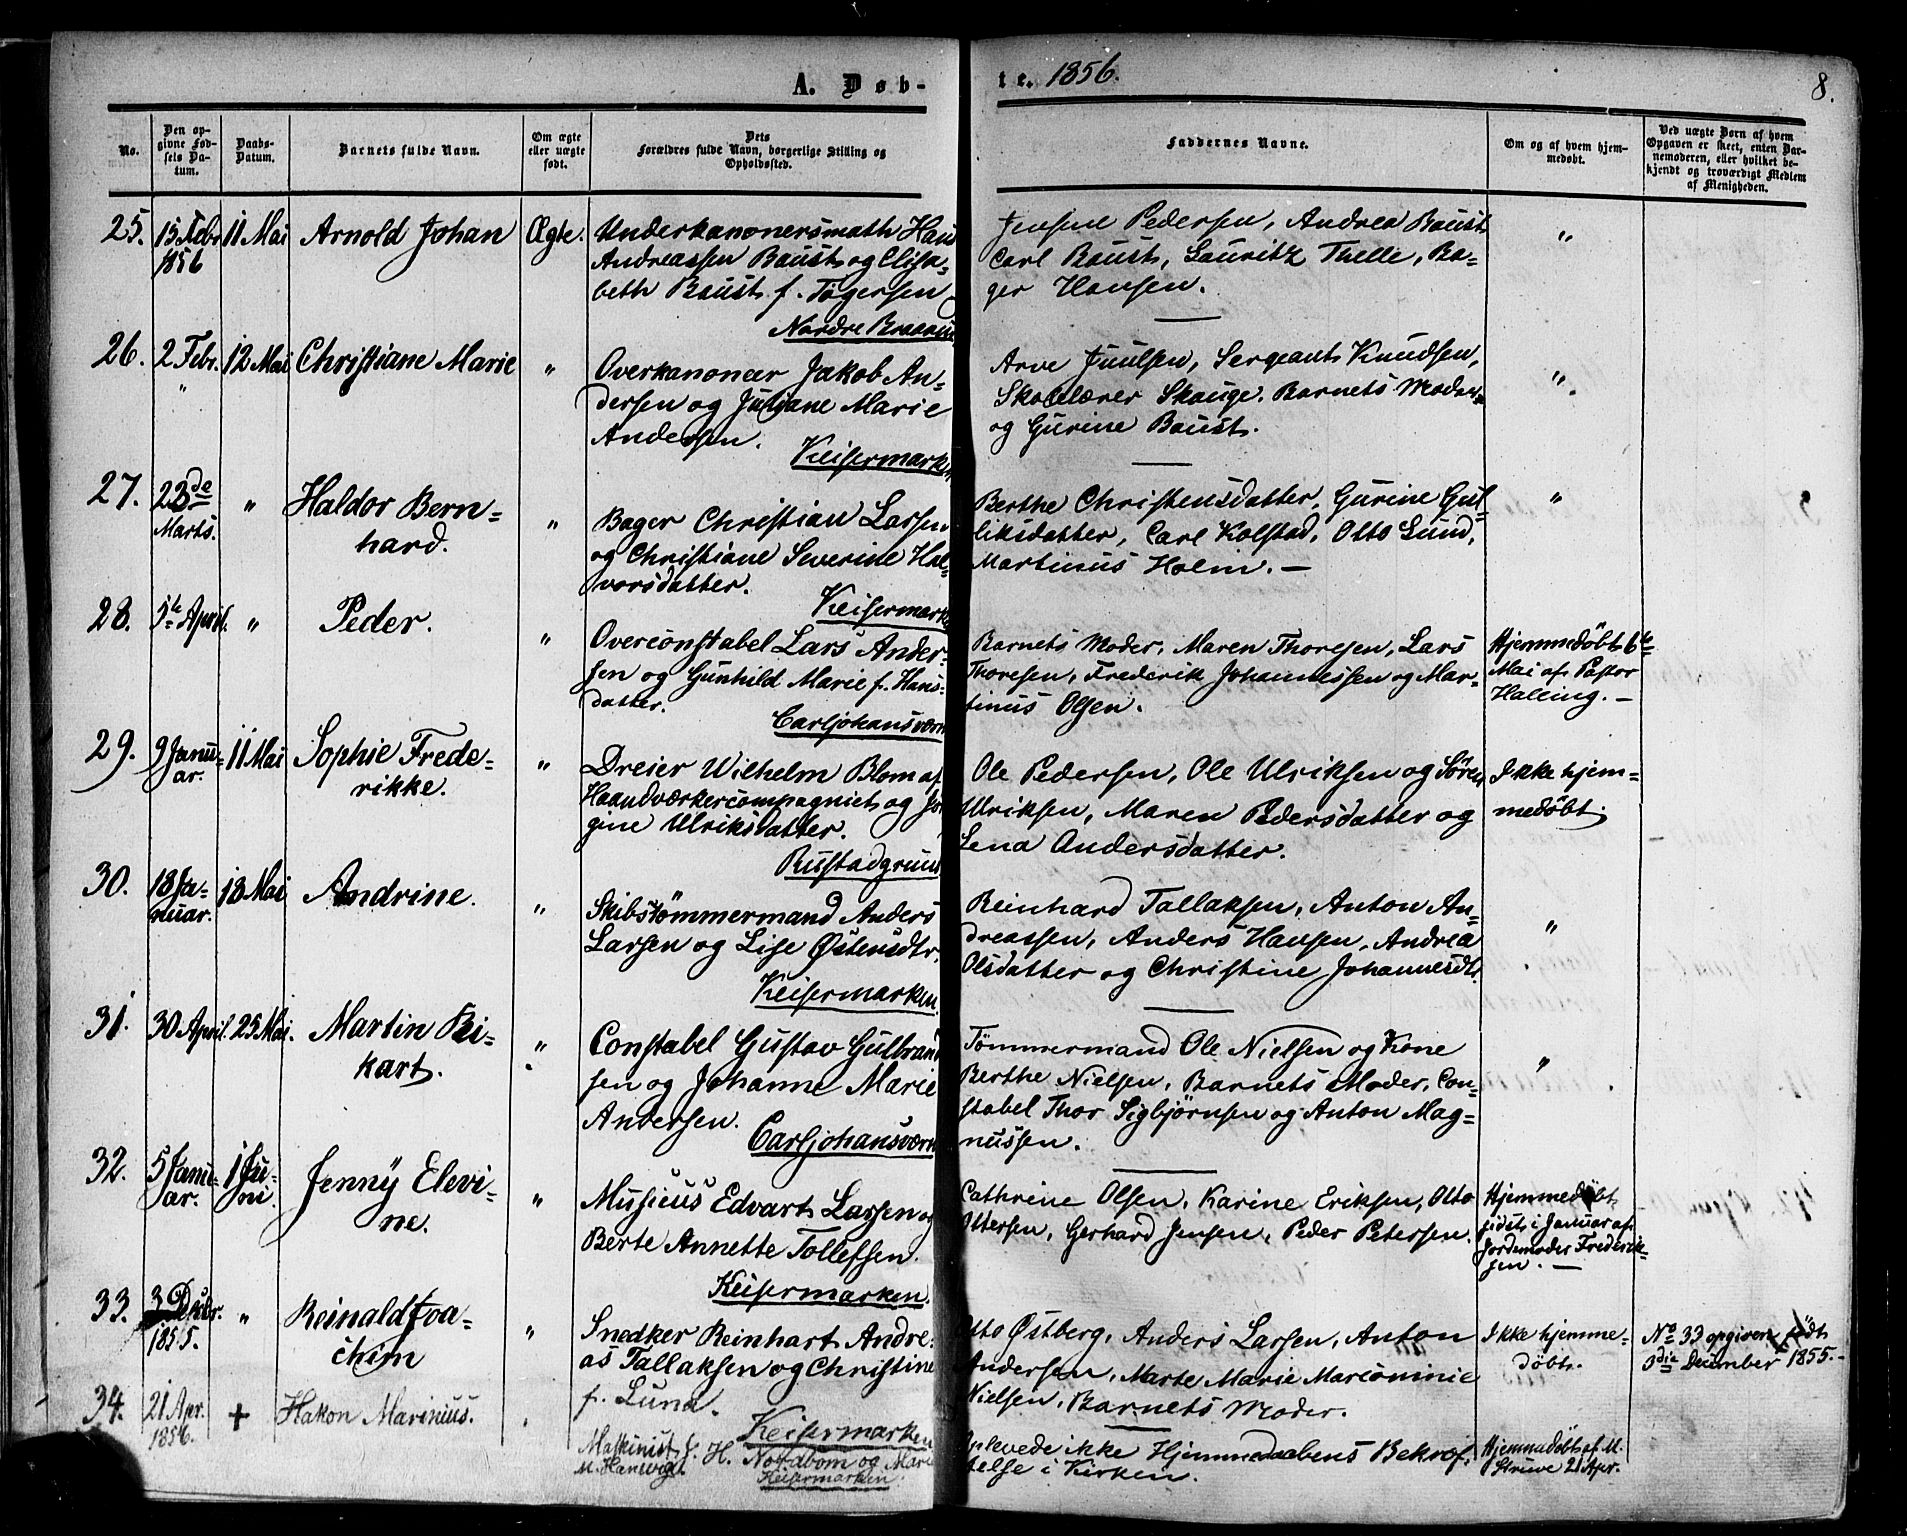 A. Døb-
te. 1856.
8.
No.
Den op-
givne Fød-
sels Da-
tum.
Daabs-
Datum.
Barnets fulde Navn.
Om ægte
eller uægte
født.
Dets
Forældres fulde Navn, borgerlige Stilling og
Opholdssted.
Faddernes Navne.
Om og af hvem hjem-
medøbt.
Ved uægte Børn af hvem
Opgaven er skeet, enten Bar-
nemoderen, eller hvilket be-
kjendt og troværdigt Medlem
af Menigheden.
25. 15 Febr 11 Mai Arnold Johan Ægte.
1856
Underkanonersmath Han
Andreassen Baust og Elisa-
beth Baust f. Tøgersen
Nordre
Jensine Pedersen, Andrea Baust
Carl Baust, Lauritz Thelle, Ba-
ger Hansen.
"
26. 2 Febr. 12 Mai Christiane Marie "
"
Overkanoneer Jakob An-
dersen og Juliane Marie
Andersen.
Keisermarken
Arve Juulsen, Sergeant Knudsen,
Skolelærer Skauge, Barnets Moder
og Gurine Baust.
"
27. 23de " Haldor Bern=
Marts. hard. "
Bager Christian Larsen
og Christiane Severine Hal-
vorsdatter.
Keisermark
Berthe Christensdatter, Gurine Gul=
liksdatter, Carl Kolstad, Otto Lund,
Martinus Holm. —
"
28. 5te April. " Peder. "
Overconstabel Lars Ander-
sen og Gunhild Marie f. Hans-
datter.
Carljohansværn
Barnets Moder, Maren Thoresen, Lars
Thoresen, Frederik Johannessen og Mar-
tinus Olsen.
Hjemmedøbt 6te
Mai af Pastor
Halling. —
29. 9 Janu- 11 Mai Sophie Frede- "
ar. rikke.
Dreier Wilhelm Blom af
Haandværkercompagniet og Jør
gine Ulriksdatter.
Rustadgrund
Ole Pedersen, Ole Ulriksen og Sören
Ulriksen, Maren Pedersdatter og
Lena Andersdatter.
Ikke hjem-
medøbt.
30. 18 Ja- 18 Mai Andrine. "
nuar.
Skibstömmermand Anders
Larsen og Lise Østensdtr.
Keisermarken.
Reinhard Tallaksen, Anton An=
dreassen, Anders Hansen, Andrea
Olsdatter og Christine Johannesdtr.
"
31. 30 April. 25 Mai. Martin Ri- "
kart.
Constabel Gustav Gulbrand
sen og Johanne Marie
Andersen.
Carljohansværn
Tømmermand Ole Nielsen og Kone
Berthe Nielsen, Barnets Moder, Con=
stabel Thor Sigbjørnsen og Anton Mag=
nussen.
"
32. 5 Janu- 1 Ju- Jenny Elevi- "
ar. ni. ne.
Musicus Edvart Larsen og
Berte Annette Tollefsen.
Keisermarken.
Cathrine Olsen, Karine Eriksen, Otto
Ottersen, Gerhard Jensen, Peder Petersen.
Hjemmedøbt
sidst i Januar af
Jordemoder Frederik-
sen. —
33. 3 Dcbr. " Reinald Joa- "
1855. chim
Snedker Reinhart Andre-
as Tallaksen og Christine
f. Lund.
Keisermarken
Otto Østberg, Anders Larsen, Anton
Andersen, Marte Marie Mariominie
Nielsen, Barnets Moder.
Ikke hjemme-
døbt.
No 33 opgiven födt
3die December 1855. -
34. 21 Apr. + Hakon Marinius. "
1856.
Maskinist J. H. Nordbom og Mari
M. Hanevig.
Keisermarken.
Oplevede ikke Hjemmedaabens Bekræf-
telse i Kirken.
Hjemmedøbt af M.
Struve 21 Apr.